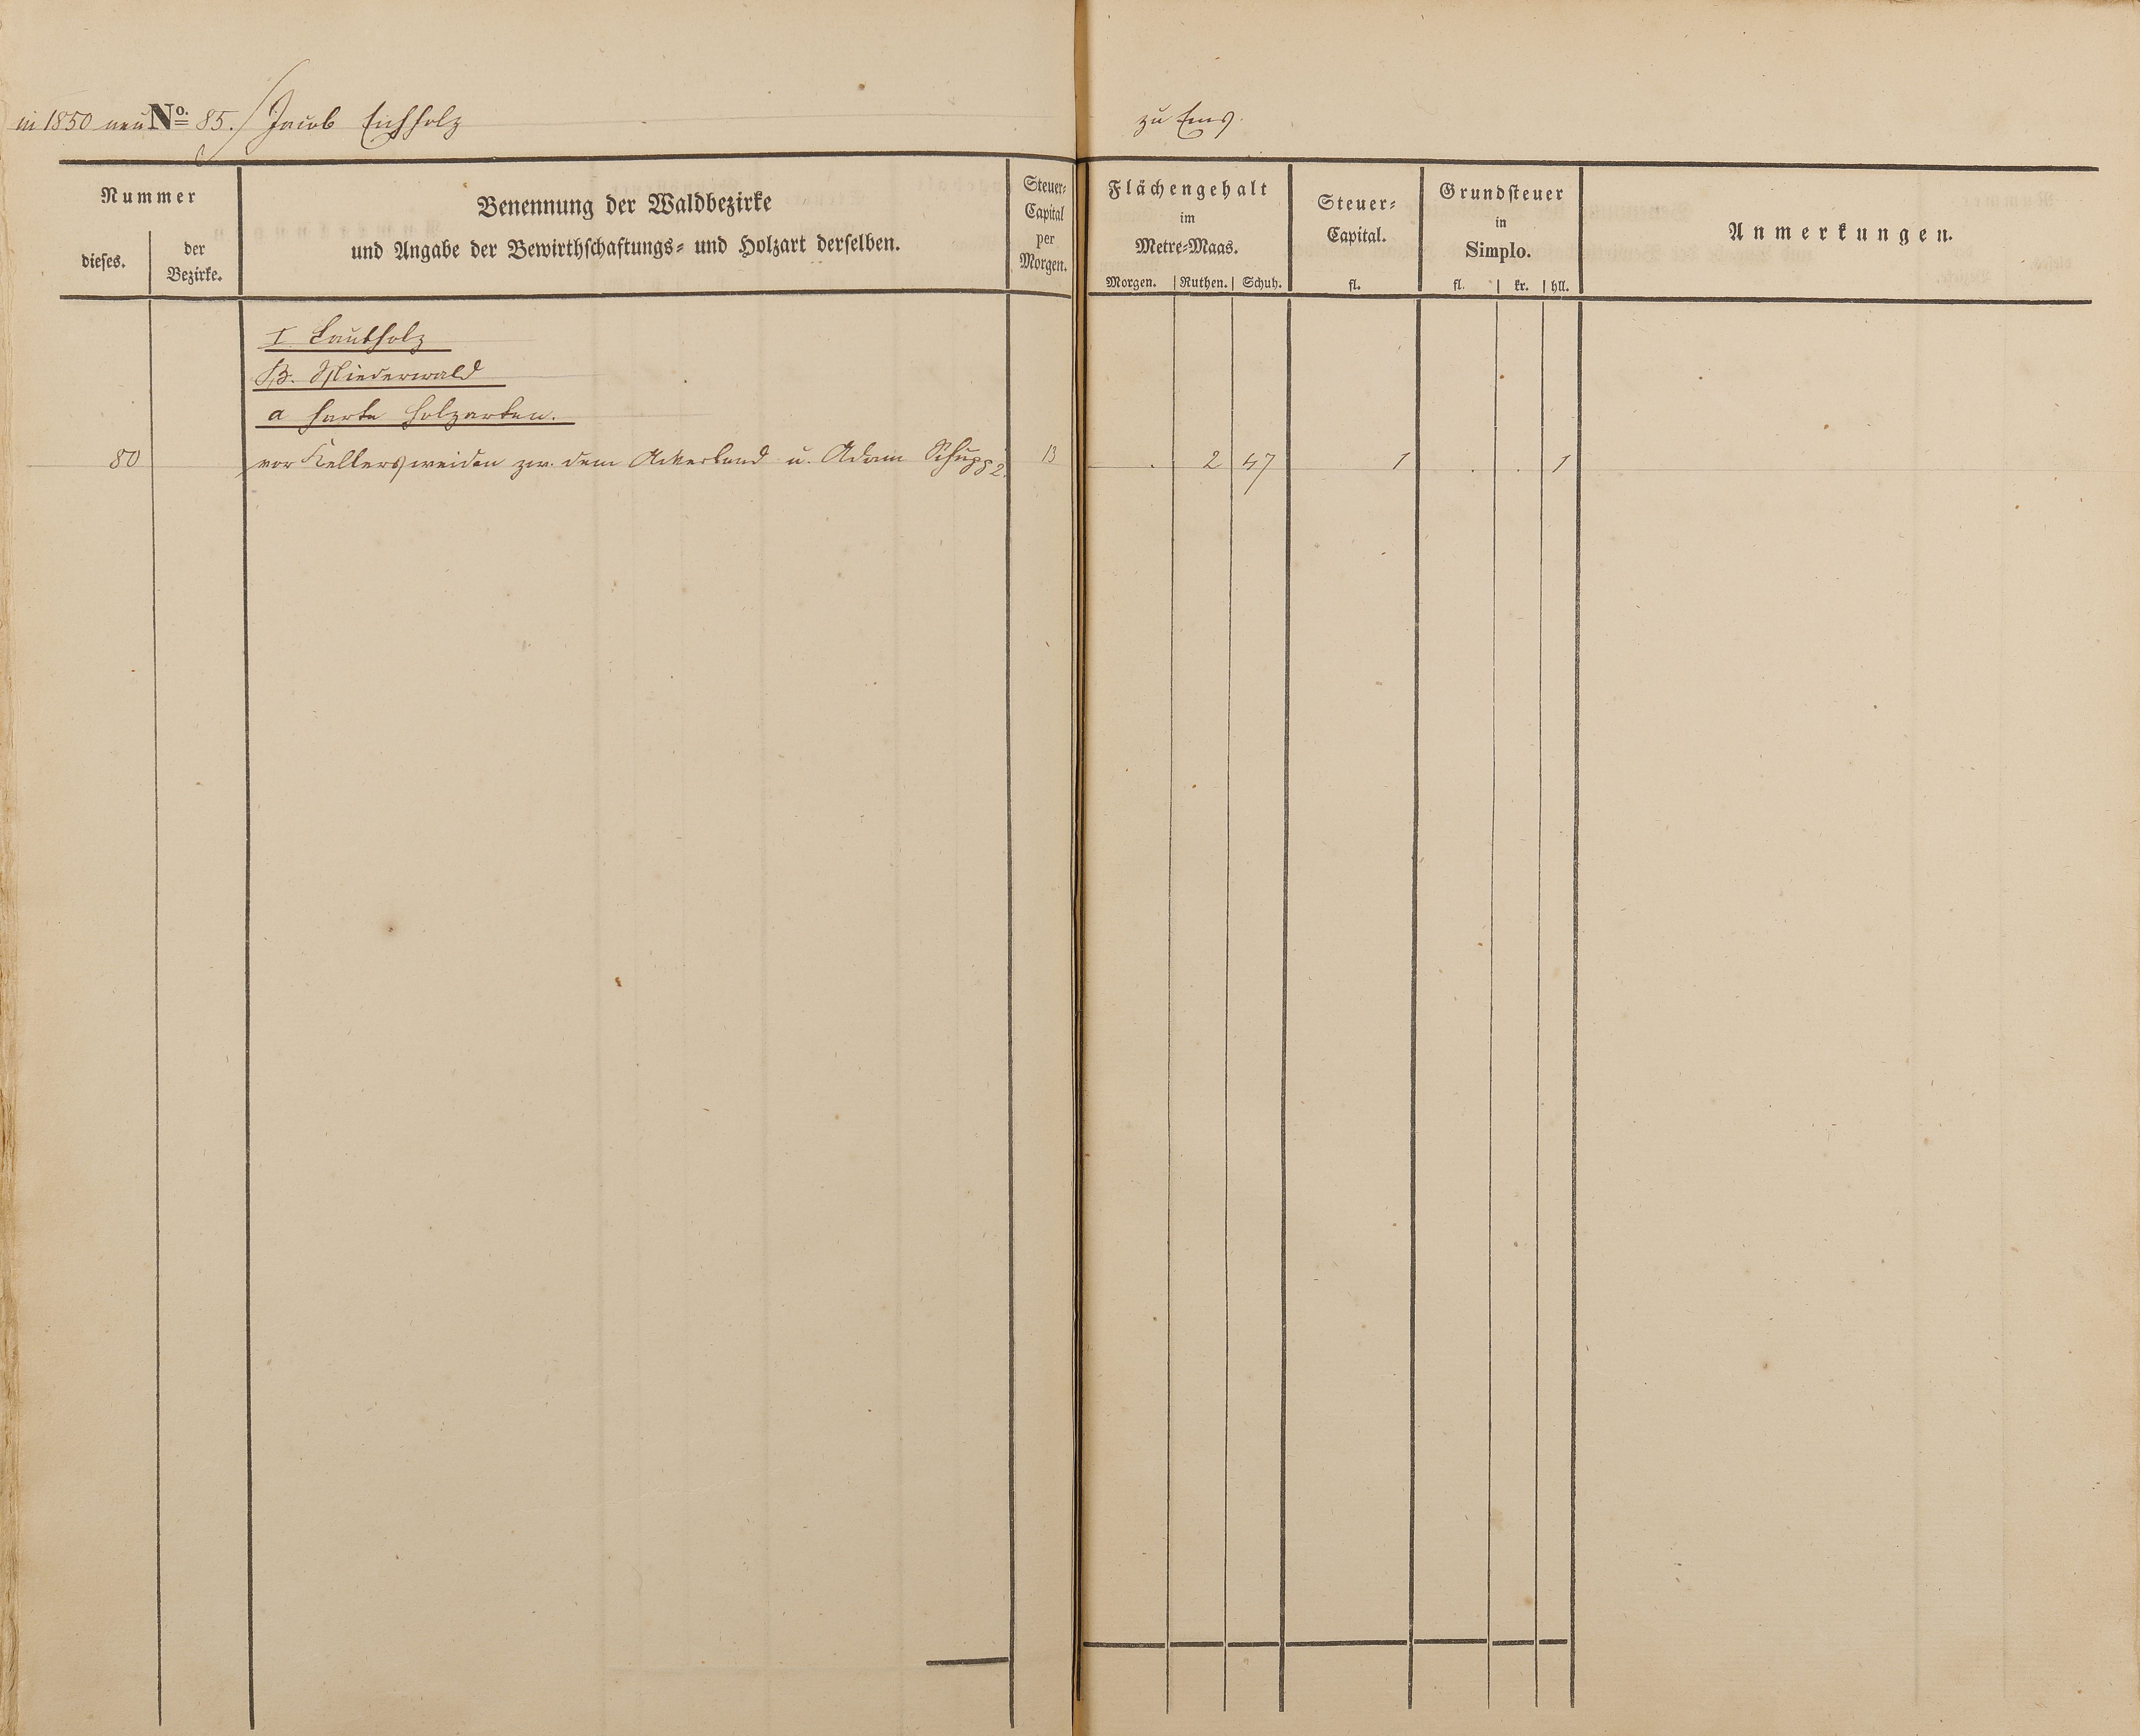 in 1850 neu No. 85. Jacob Eichholz zu Ems.
Nummer
dieses.
der Bezirke.
Benennung der Waldbezirke
und Angabe der Bewirthschaftungs- und Holzart derselben.
Steuer-
Capital
per
Morgen.
Flächengehalt
im
Metre-Maas.
Morgen. Ruthen. Schuh.
Steuer-
Capital.
fl.
Grundsteuer
in
Simplo.
fl. kr. hll.
Anmerkungen.
I Laubholz
B. Niederwald
a harte Holzarten.
80 vor Kellersweiden zw. dem Ackerland u. Adam 13 . 2 47 1 . . 1